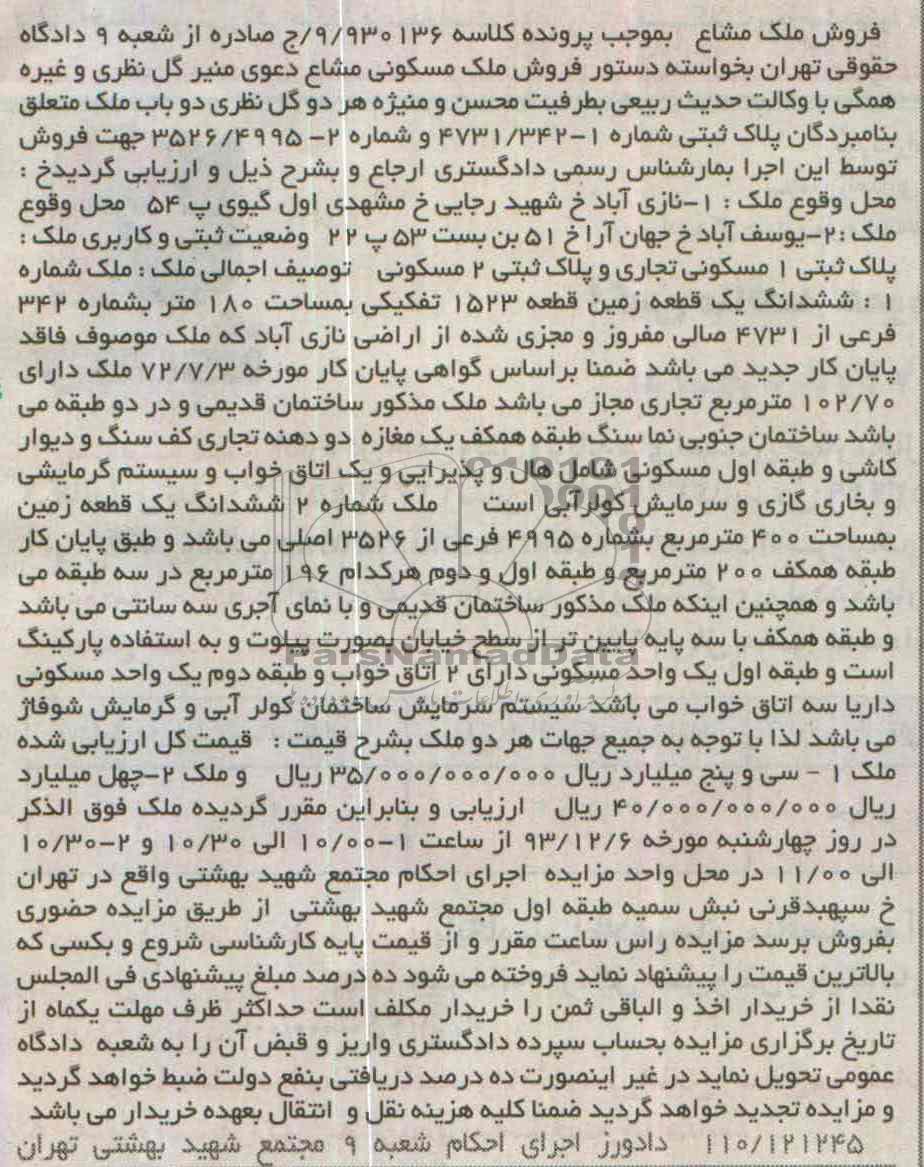 فروش ملک مشاع بموجب پرونده کلاسه ۹/۹۳۰۱۳۶/ج صادره از شعبه ۹ دادگاه
حقوقی تهران بخواسته دستور فروش ملک مسکونی مشاع دعوی منیر گل نظری و غیره
همگی با وکالت حدیث ربیعی بطرفیت محسن و منیژه هر دو گل نظری دو باب ملک متعلق
بنامبردگان پلاک ثبتی شماره ۱-۴۷۳۱/۳۴۲ و شماره ۲-۳۵۲۶/۴۹۹۵ جهت فروش
توسط این اجرا بمارشناس رسمی دادگستری ارجاع و بشرح ذیل و ارزیابی گردیدخ :
محل وقوع ملک : ۱-نازی آباد خ شهید رجایی خ مشهدی اول گیوی پ ۵۴ محل وقوع
ملک :۲-یوسف آباد خ جهان آرا خ ۵۱ بن بست ۵۳ پ ۲۲ وضعیت ثبتی و کاربری ملک :
پلاک ثبتی ۱ مسکونی تجاری و پلاک ثبتی ۲ مسکونی توصیف اجمالی ملک : ملک شماره
۱ : ششدانگ یک قطعه زمین قطعه ۱۵۲۳ تفکیکی بمساحت ۱۸۰ متر بشماره ۳۴۲
فرعی از ۴۷۳۱ صالی مفروز و مجزی شده از اراضی نازی آباد که ملک موصوف فاقد
پایان کار جدید می باشد ضمنا براساس گواهی پایان کار مورخه ۷۲/۷/۳ ملک دارای
۱۰۲/۷۰ مترمربع تجاری مجاز می باشد ملک مذکور ساختمان قدیمی و در دو طبقه می
باشد ساختمان جنوبی نما سنگ طبقه همکف یک مغازه دو دهنه تجاری کف سنگ و دیوار
کاشی و طبقه اول مسکونی شامل هال و پذیرایی و یک اتاق خواب و سیستم گرمایشی
و بخاری گازی و سرمایش کولرآبی است ملک شماره ۲ ششدانگ یک قطعه زمین
بمساحت ۴۰۰ مترمربع بشماره ۴۹۹۵ فرعی از ۳۵۲۶ اصلی می باشد و طبق پایان کار
طبقه همکف ۲۰۰ مترمربع و طبقه اول و دوم هرکدام ۱۹۶ مترمربع در سه طبقه می
باشد و همچنین اینکه ملک مذکور ساختمان قدیمی و با نمای آجری سه سانتی می باشد
و طبقه همکف با سه پایه پایین تر از سطح خیابان بصورت پیلوت و به استفاده پارکینگ
ParsNamadData
است و طبقه اول یک واحد مسکونی دارای ۲ اتاق خواب و طبقه دوم یک واحد مسکونی
داریا سه اتاق خواب می باشد سیستم سرمایش ساختمان کولر آبی و گرمایش شوفاژ
می باشد لذا با توجه به جمیع جهات هر دو ملک بشرح قیمت : قیمت کل ارزیابی شده
ملک ۱ - سی و پنج میلیارد ریال ۳۵/۰۰۰/۰۰۰/۰۰۰ ریال و ملک ۲-چهل میلیارد
ریال ۴۰/۰۰۰/۰۰۰/۰۰۰ ریال ارزیابی و بنابراین مقرر گردیده ملک فوق الذکر
در روز چهارشنبه مورخه ۹۳/۱۲/۶ از ساعت ۱-۱۰/۰۰ الی ۱۰/۳۰ و ۲-۱۰/۳۰
الی ۱۱/۰۰ در محل واحد مزایده اجرای احکام مجتمع شهید بهشتی واقع در تهران
خ سپهبدقرنی نبش سمیه طبقه اول مجتمع شهید بهشتی از طریق مزایده حضوری
بفروش برسد مزایده راس ساعت مقرر و از قیمت پایه کارشناسی شروع و بکسی که
بالاترین قیمت را پیشنهاد نماید فروخته می شود ده درصد مبلغ پیشنهادی فی المجلس
نقدا از خریدار اخذ و الباقی ثمن را خریدار مکلف است حداکثر ظرف مهلت یکماه از
تاریخ برگزاری مزایده بحساب سپرده دادگستری واریز و قبض آن را به شعبه دادگاه
عمومی تحویل نماید در غیر اینصورت ده درصد دریافتی بنفع دولت ضبط خواهد گردید
و مزایده تجدید خواهد گردید ضمنا کلیه هزینه نقل و انتقال بعهده خریدار می باشد
۱۱۰/۱۲۱۲۴۵ دادورز اجرای احکام شعبه ۹ مجتمع شهید بهشتی تهران